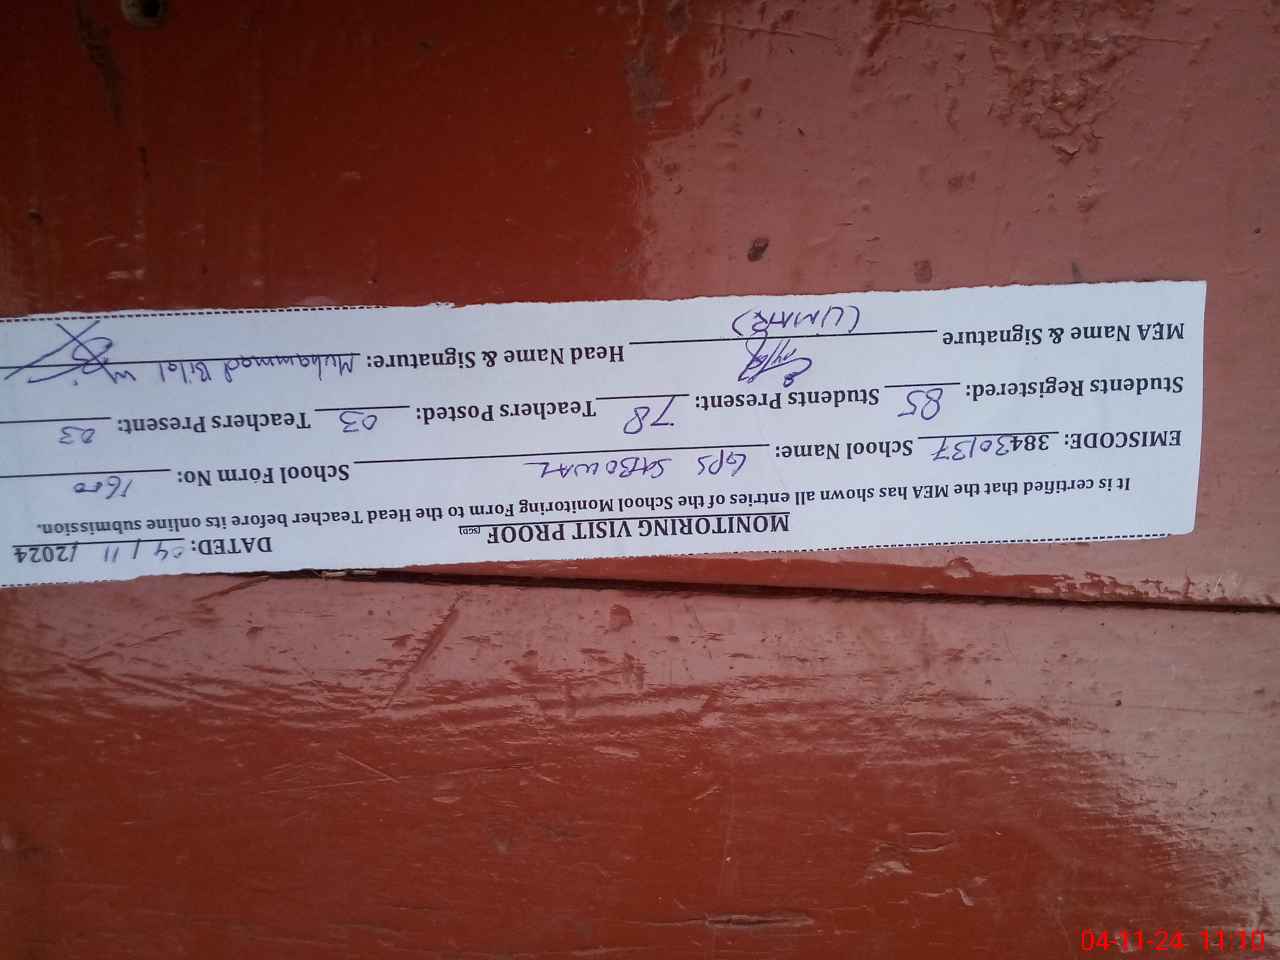 MONITORING VISIT PROOF (SGD) DATED: 04 / 11 /2024
It is certified that the MEA has shown all entries of the School Monitoring Form to the Head Teacher before its online submission.
EMISCODE: 38430137 School Name: GPS SABOWAL School Form No: 1600
Students Registered: 85 Students Present: 78 Teachers Posted: 03 Teachers Present: 03
MEA Name & Signature (UMAR) Head Name & Signature: Muhammad Bilal
04-11-24 11:10